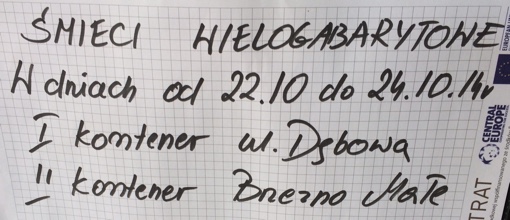 ŚMIECI WIELOGABARYTOWE
W dniach od 22.10 do 24.10.14r
I kontener ul. Dębowa
II kontener Brzezno Małe
CENTRAL EUROPE
TRAT